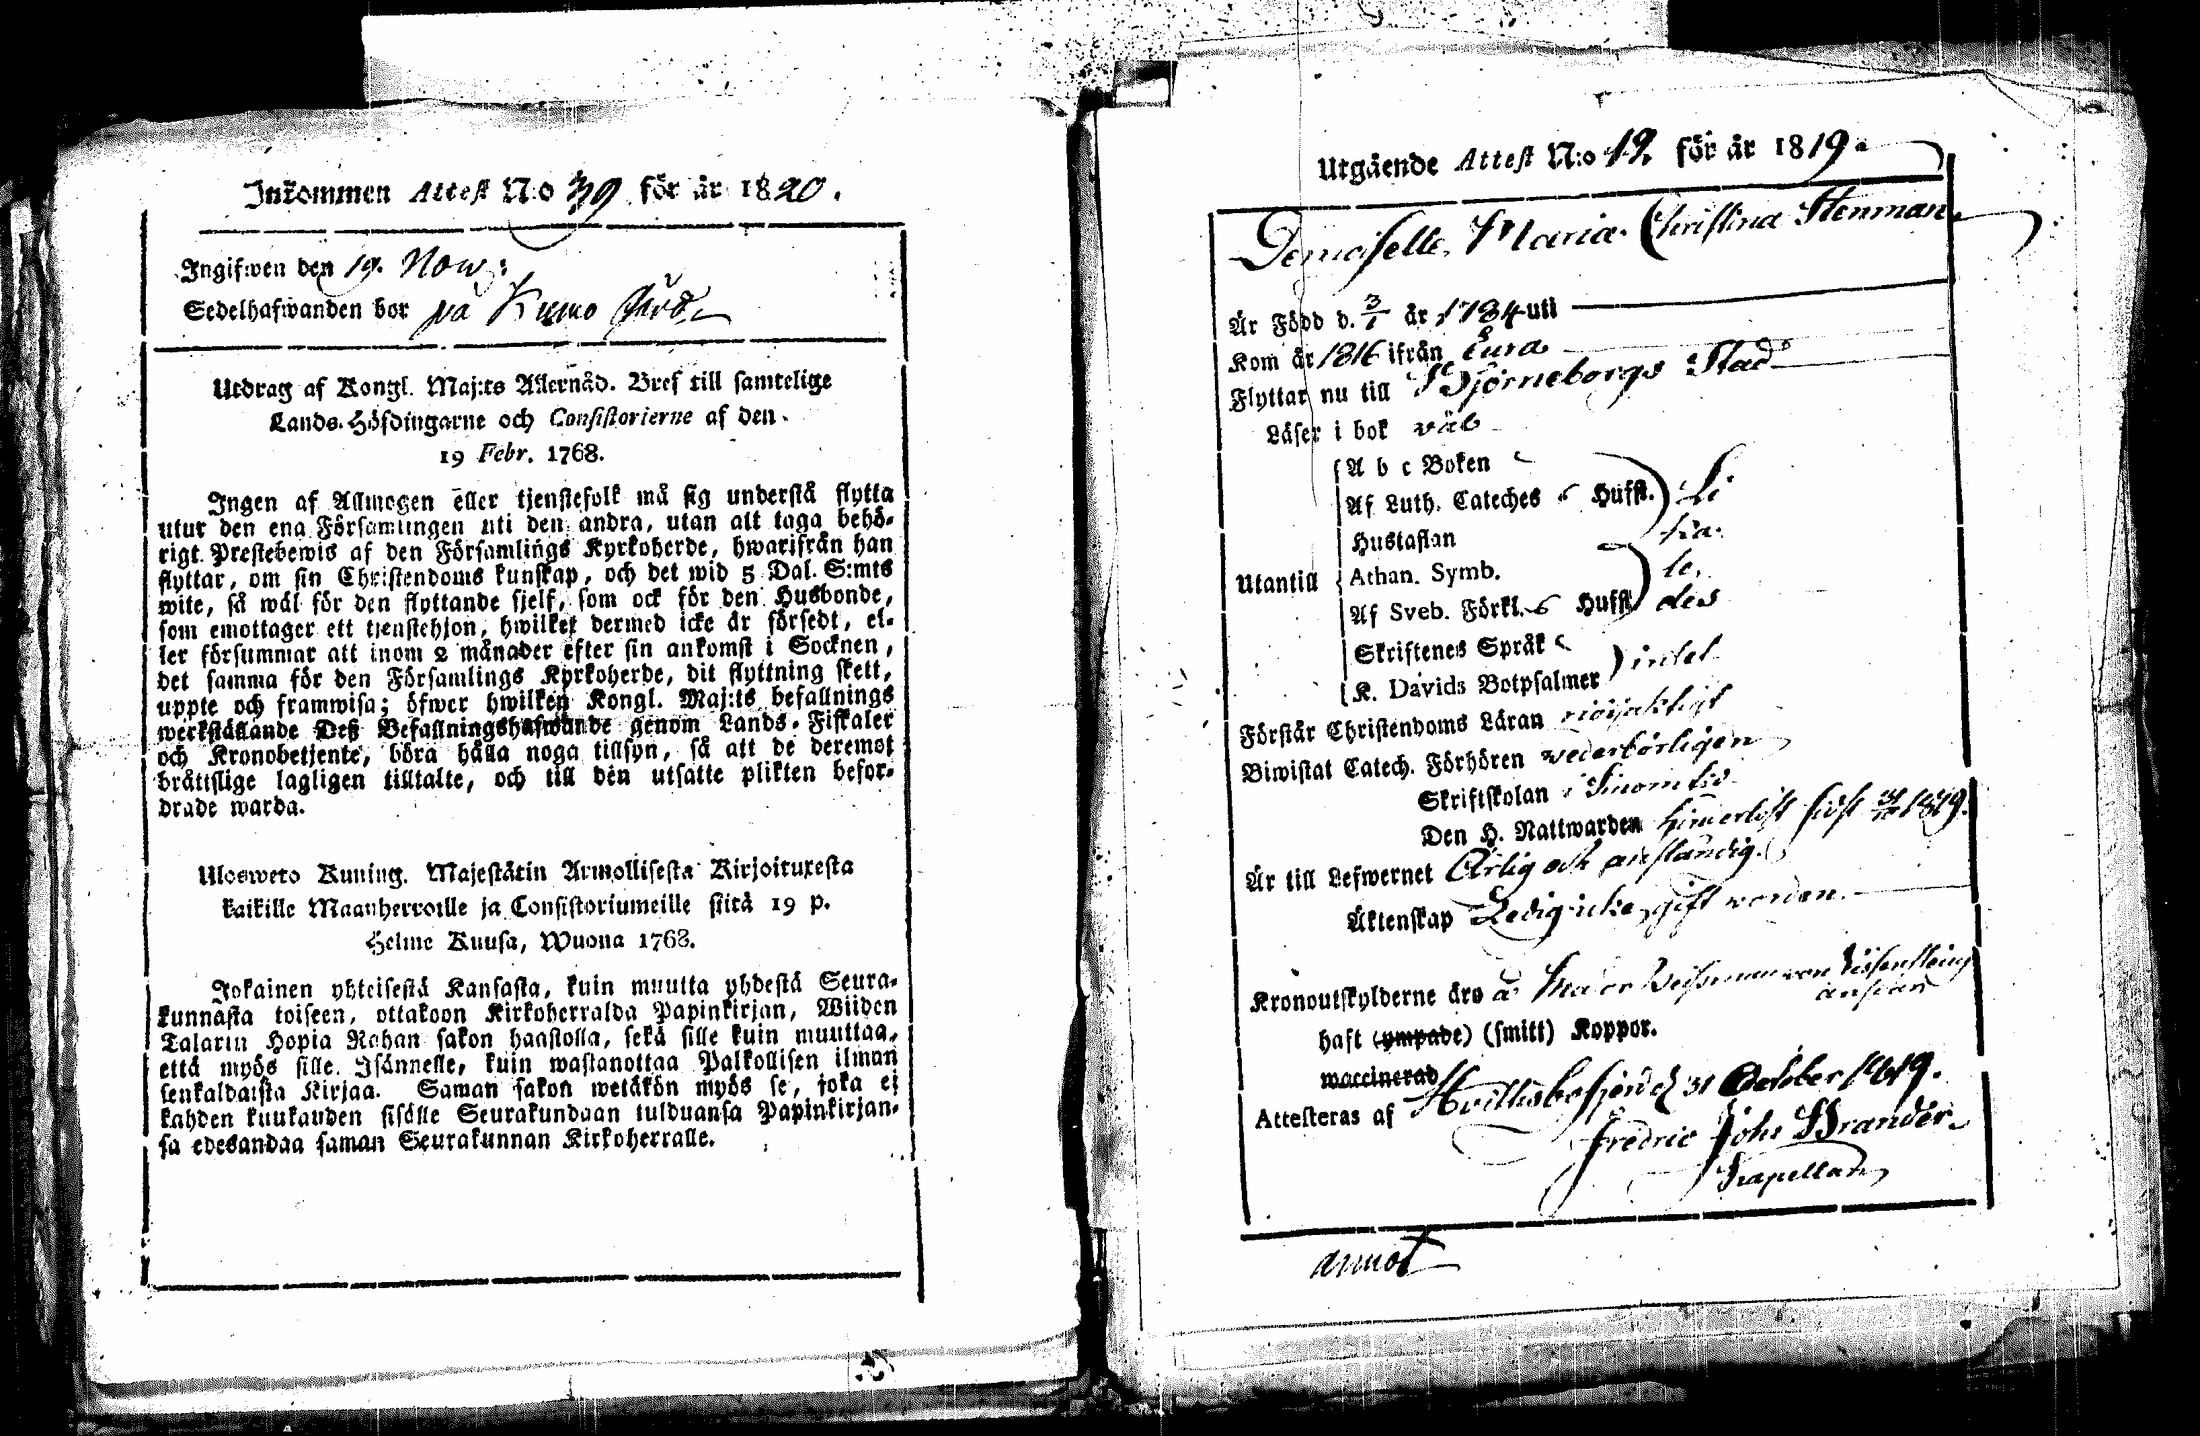 Inkommen Attest N:o 39 för år 1820.
Ingifwen den 19. Now:
Sedelhafwanden bor på Kumo
Utdrag af Kongl. Maj:ts Allernåd. Bref till samtelige
Lands-Höfdingarne och Consistorierne af den
19 Febr. 1768.
Ingen af Allmogen eller tjenstefolk må sig understå flytta
utur den ena Församlingen uti den andra, utan att taga behö-
rigt Prestebewis af den Församlings Kyrkoherde, hwarifrån han
flyttar, om sin Christendoms kunskap, och det wid 5 Dal. S:mts
wite, så wäl för den flyttande sjelf, som ock för den Husbonde,
som emottager ett tjenstehjon, hwilket dermed icke är försedt, el-
ler försummar att inom 2 månader efter sin ankomst i Socknen,
det samma för den Församlings Kyrkoherde, dit flyttning skett,
uppte och framwisa; öfwer hwilken Kongl. Maj:ts befallnings
werkställande Deß Befallningshafwande genom Lands-Fiskaler
och Kronobetjente, böra hålla noga tillsyn, så att de deremot
bråttslige lagligen tilltalte, och till den utsatte plikten befor-
drade warda.
Ulosweto Kuning. Majestätin Armollisesta Kirjoituxesta
kaikille Maanherroille ja Consistoriumeille siitä 19 p.
Helme Kuusa, Wuona 1768.
Jokainen yhteisestä Kansasta, kuin muutta yhdestä Seura-
kunnasta toiseen, ottakoon Kirkoherralda Papinkirjan, Wiiden
Talarin Hopia Rahan sakon haastolla, sekä sille kuin muuttaa,
että myös sille Isännelle, kuin wastanottaa Palkollisen ilman
senkaldaista Kirjaa. Saman sakon wetäkön myös se, joka ej
kahden kuukauden sisälle Seurakundaan tulduansa Papinkirjan-
sa edesandaa saman Seurakunnan Kirkoherralle.
Utgående Attest N:o 12. för år 1819.
Demoiselle Maria Christina Stenman
Är Född d. 3/1 år 1784 uti
Kom år 1816 ifrån Eura
Flyttar nu till Björneborgs Stad
Läser i bok väl
A b c Boken
Af Luth. Cateches 6 Hufst. Li
Hustaflan ka
Utantill Athan. Symb. le
Af Sveb. Förkl. 6 Hufst. des
Skriftenes Språk
K. Davids Botpsalmer intet
Förstår Christendoms Läran nöijaktigt
Biwistat Catech. Förhören wederbörligen
Skriftskolan i Sinom tid
Den H. Nattwarden sist 31/10 1819.
Är till Lefwernet Ärlig och anständig.
Äktenskap Ledig icke gift worden.
Kronoutskylderne äro a
haft (ympade) (smitt) Koppor.
waccinerad
Attesteras af Hvittisbofjerd d 31 October 1819.
Fredric Joh: Brander
Kapellan
annot